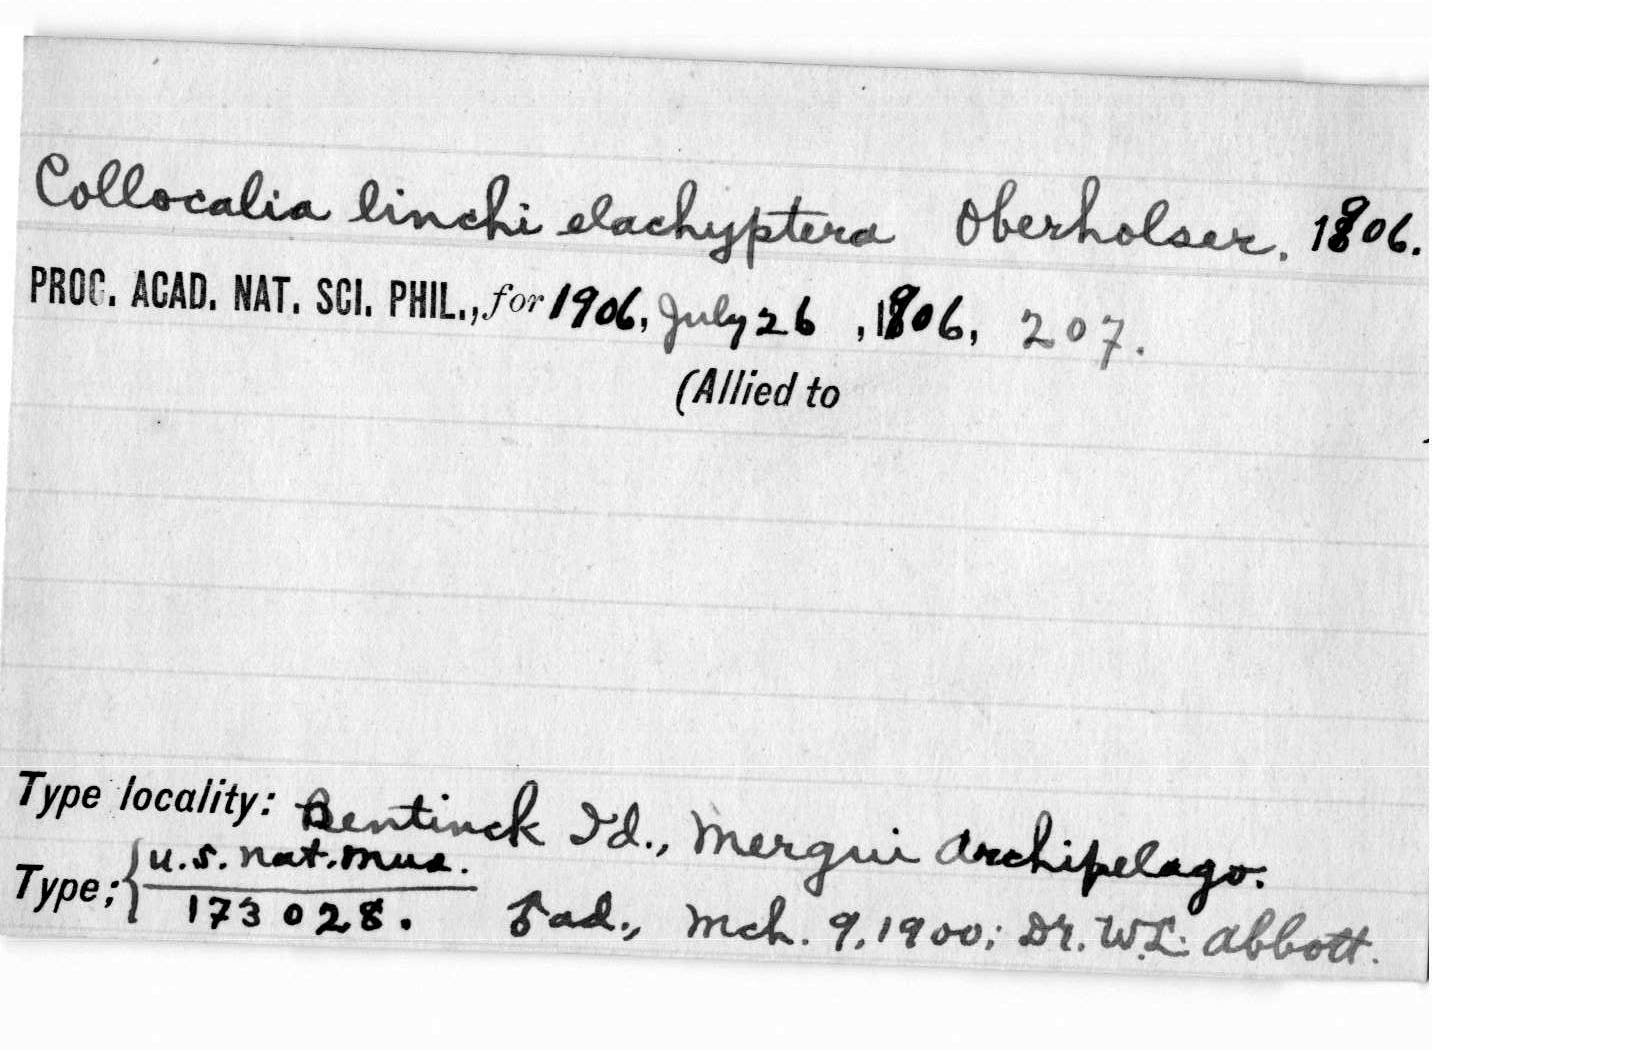 Collocalia linchi elachyptera Oberholser, 1906.
PROC. ACAD. NAT. SCI. PHIL., for 1906, July 26, 1906, 207.
(Allied to
Type locality: Bentinck Id., Mergui Archipelago.
Type; { U.S. Nat. Mus.
173028. ♂ ad., Mch. 9, 1900; Dr. W.L. Abbott.